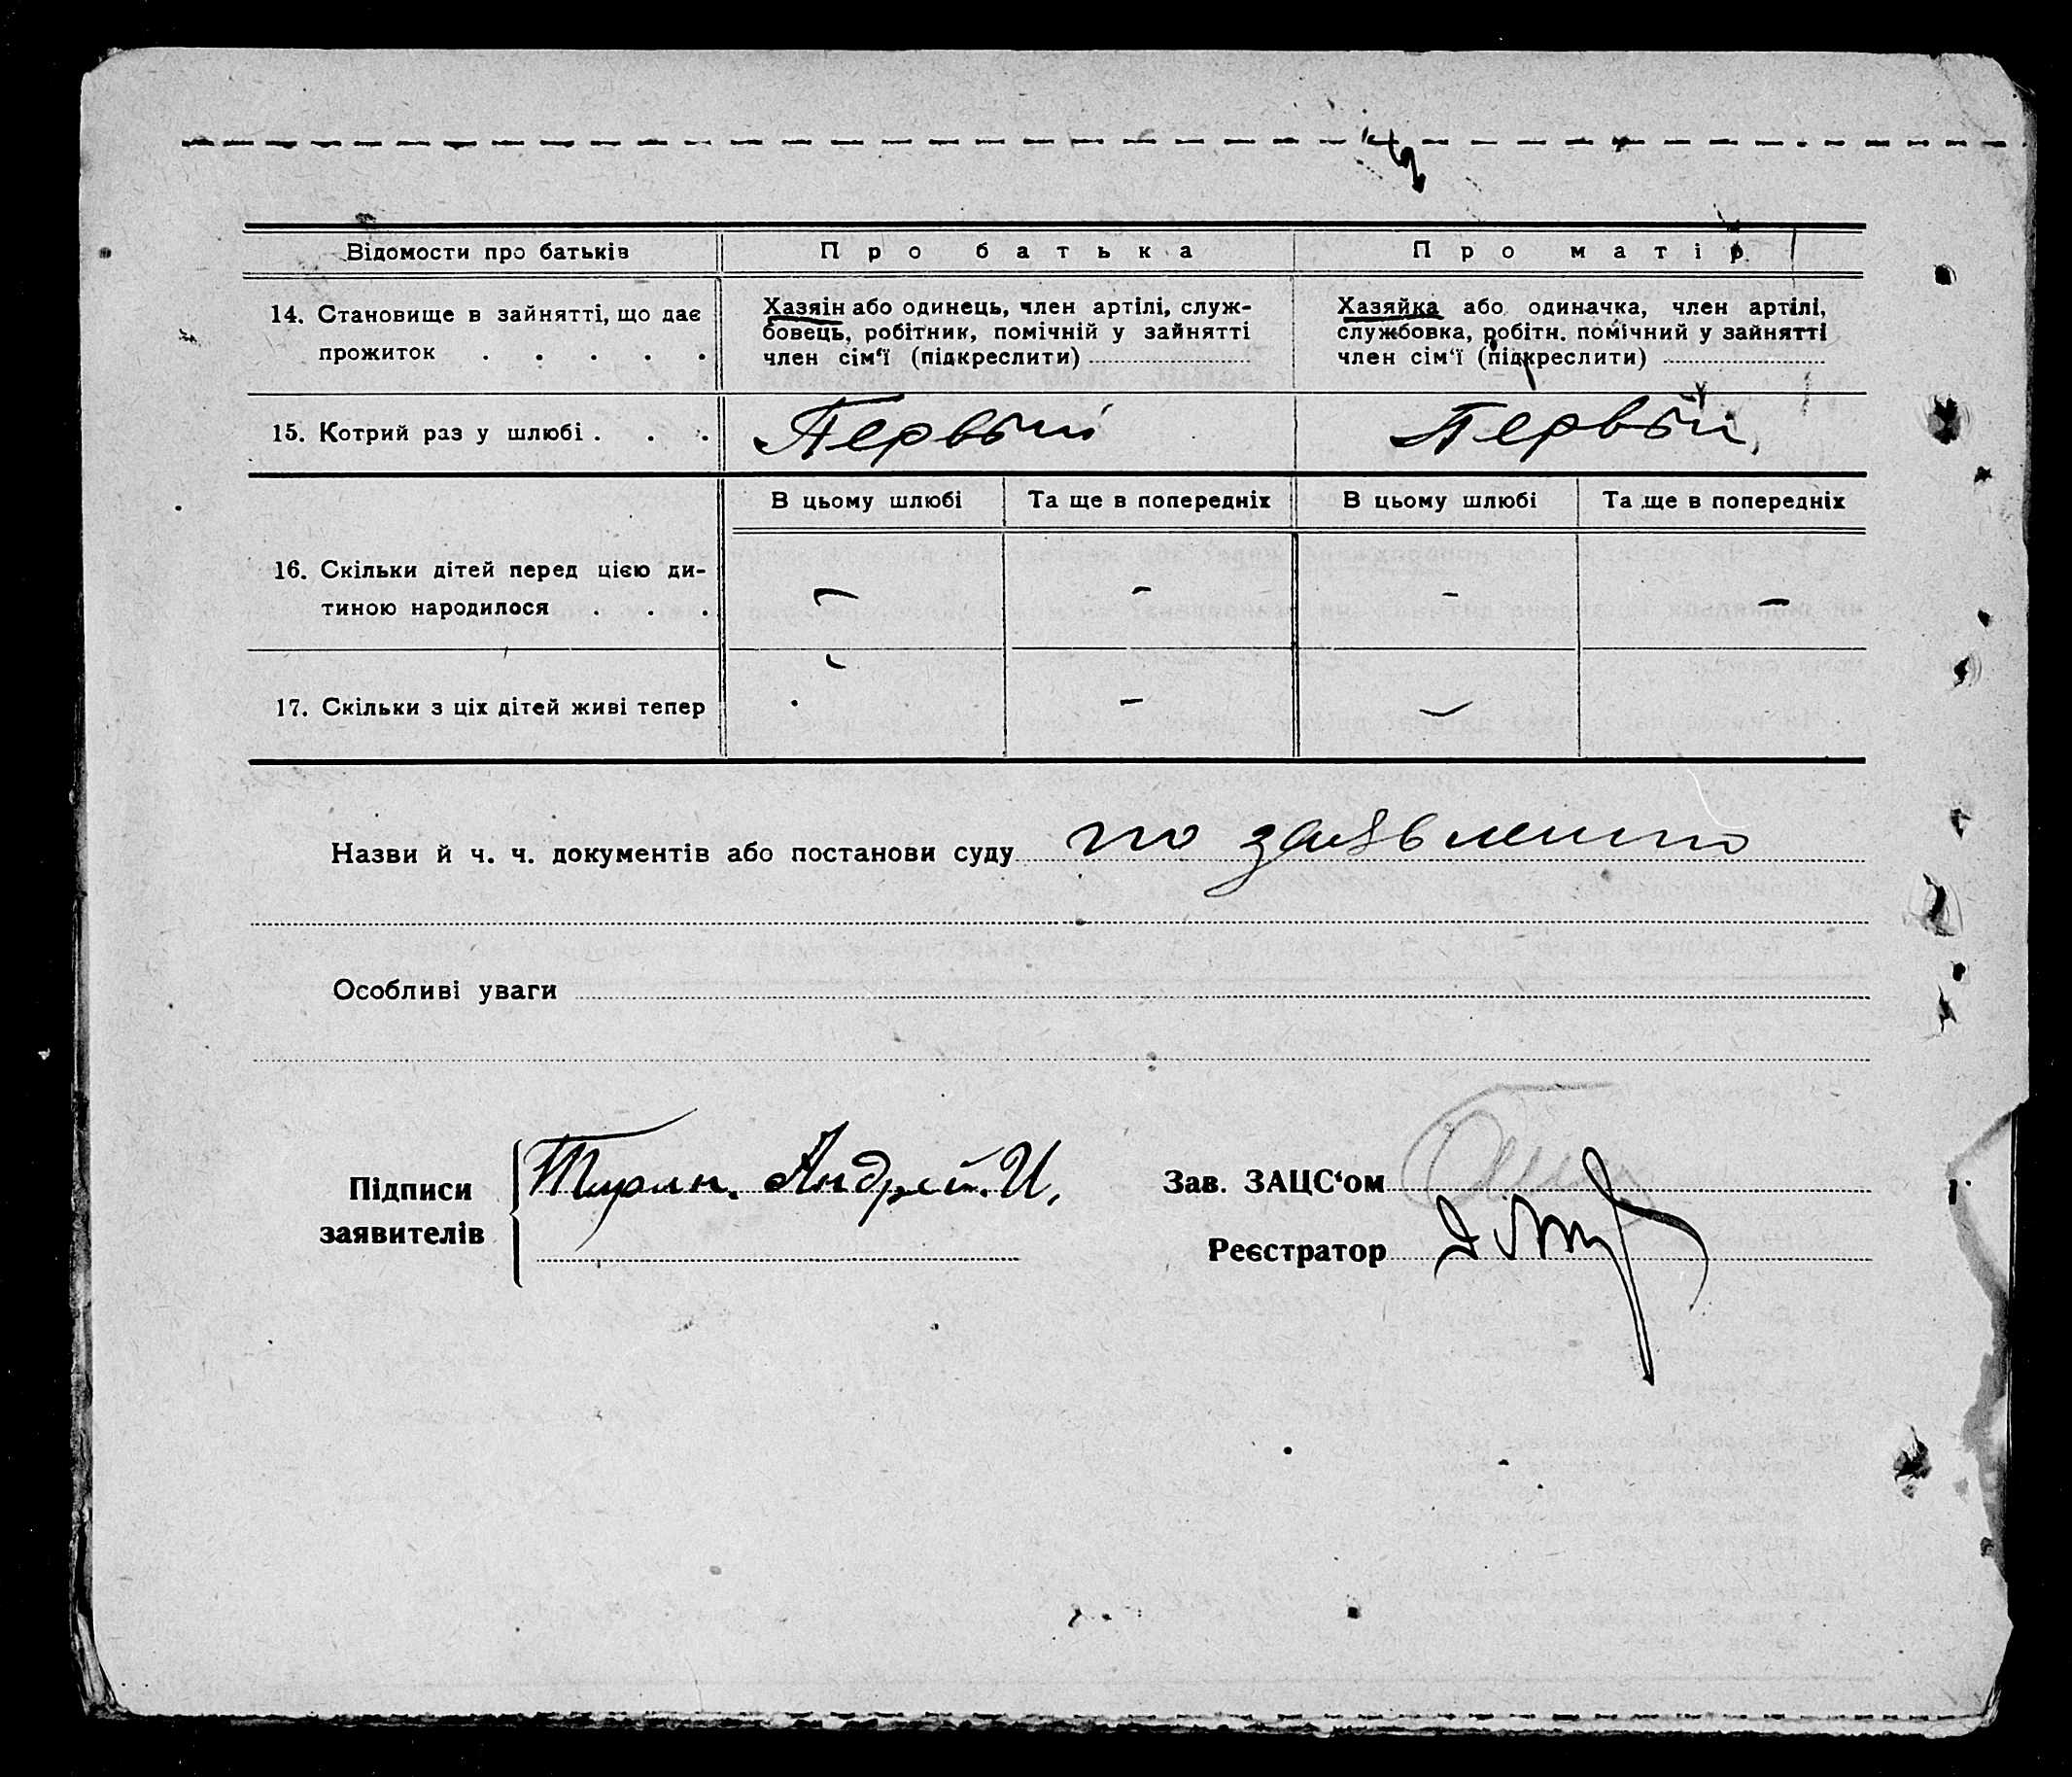 Відомости про батьків Про батька Про матір
14. Становище в зайнятті, що дає
прожиток . . . . .
Хазяїн або одинець, член артілі, служ-
бовець, робітник, помічній у зайнятті
член сім‘ї (підкреслити)
Хазяйка або одиначка, член артілі,
службовка, робітн. помічний у зайнятті
член сім‘ї (підкреслити)
15. Котрий раз у шлюбі . . . Первый Первый
В цьому шлюбі Та ще в попередніх В цьому шлюбі Та ще в попередніх
16. Скільки дітей перед цією ди-
тиною народилося . . . – – – –
17. Скільки з ціх дітей живі тепер – –
Назви й ч. ч. документів або постанови суду по заявлению
Особливі уваги
Підписи
заявителів
Андрей. И.
Зав. ЗАЦС‘ом
Реєстратор